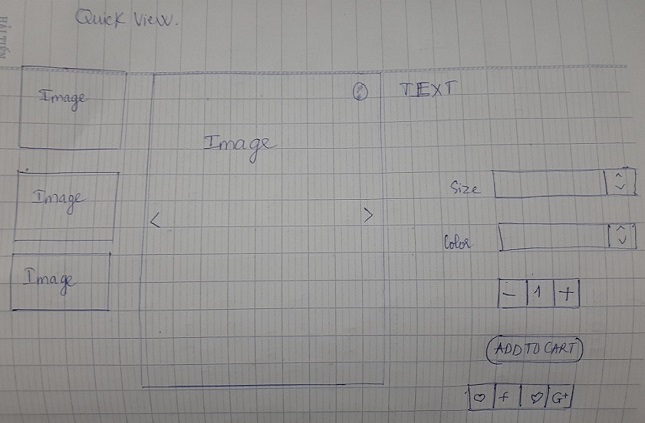 Quick View.
Image
Image
Image
Image
<
>
TEXT
Size
Color
- 1 +
ADD TO CART
f G+